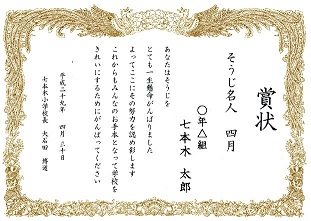 賞状
そうじ名人　四月
〇年△組
七本木　太郎
あなたはそうじを
とても一生懸命がんばりました
よってここにその努力を認め彰します
これからもみんなのお手本となって学校を
きれいにするためにがんばってください
平成二十九年　四月　三十日
七本木小学校長　大石田　博道